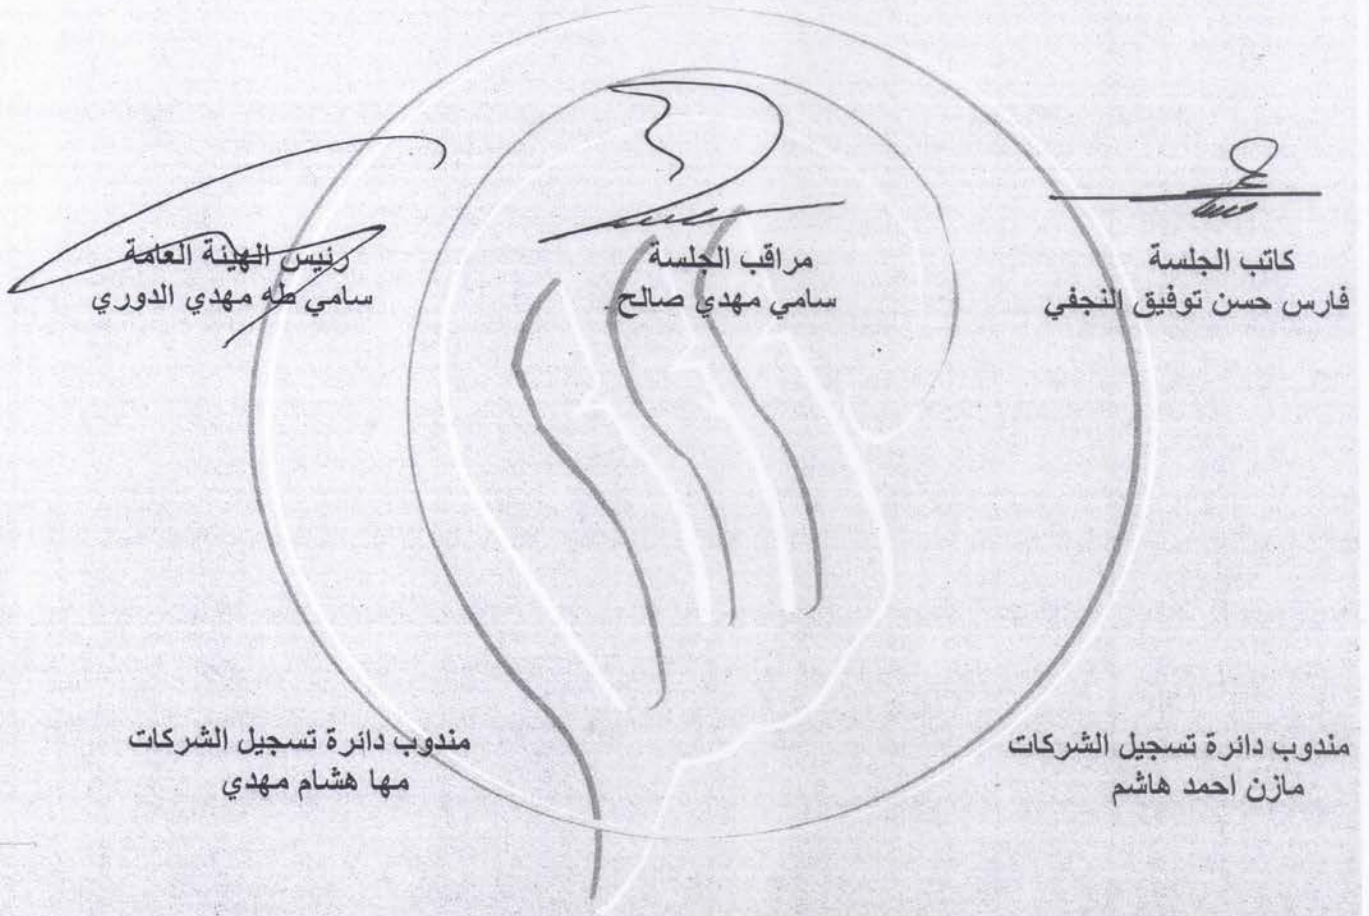 كاتب الجلسة
فارس حسن توفيق النجفي
مراقب الجلسة
سامي مهدي صالح
رئيس الهيئة العامة
سامي طه مهدي الدوري
مندوب دائرة تسجيل الشركات
مازن احمد هاشم
مندوب دائرة تسجيل الشركات
مها هشام مهدي